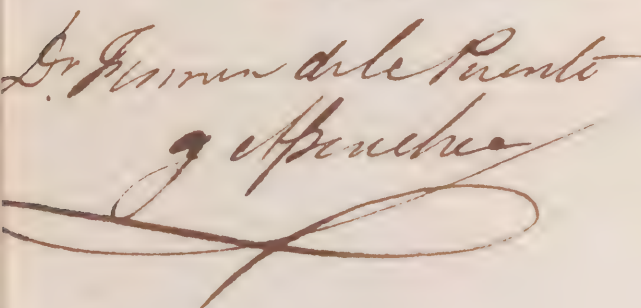 Dn Fermin de la Puente
y Apecechea